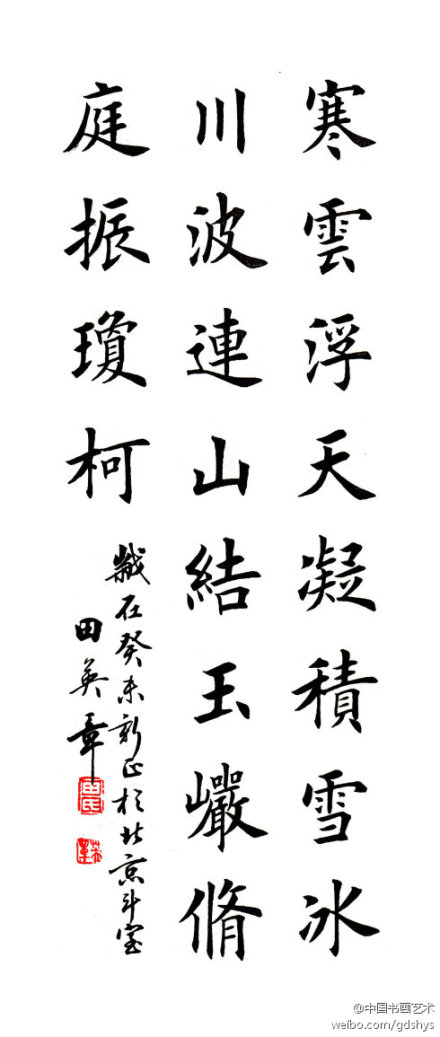 寒雲浮天凝積雪冰
川波連山結玉巖脩
庭振瓊柯
歲在癸未新正於北京斗室
田英章
@中国书画艺术
weibo.com/gdshys